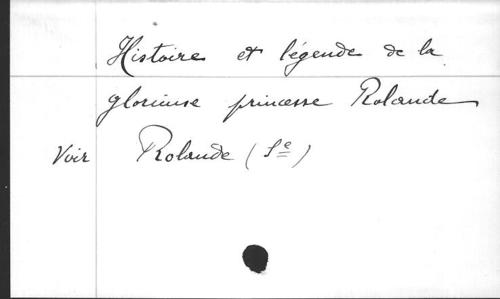 Histoire et légende de la
glorieuse princesse Rolande
Voir Rolande (Sᵉ)